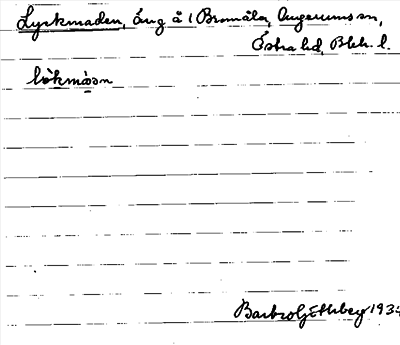 Lyckmaden, äng å 1 Bromåla, Augerums sn,
Östra hd, Blek. l.
lökmåsn
Barbro Göthberg 193